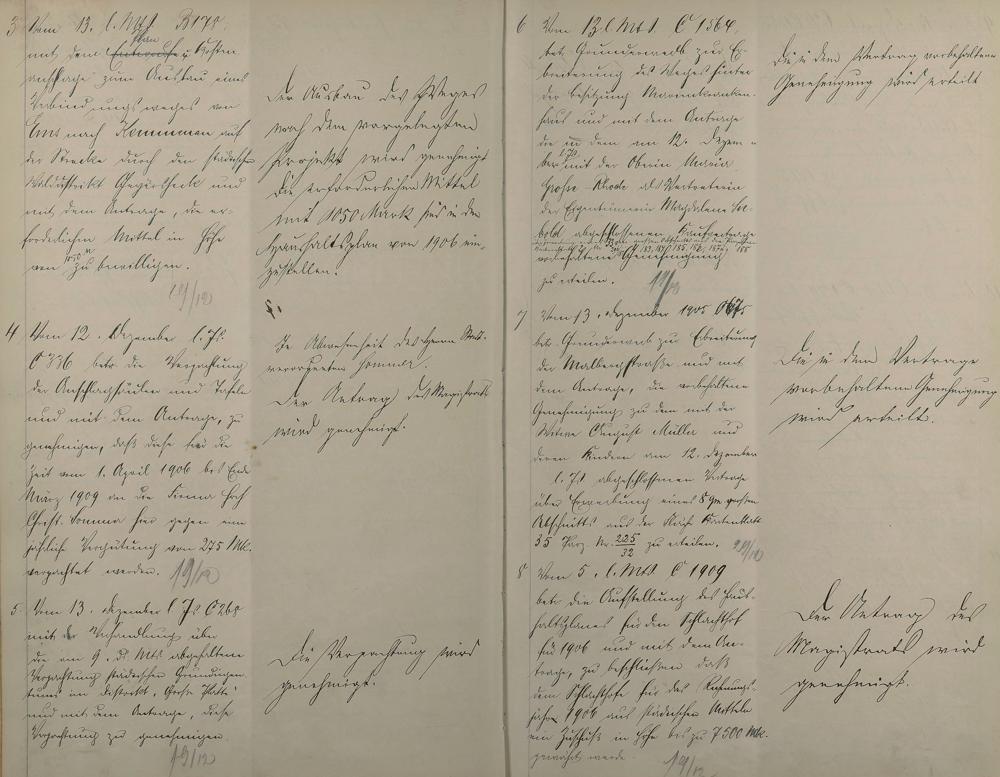 3 Vom 13. l. Mts. B 178
mit dem Plan u. Kosten
anschlage zum Ausbau eines
Verbindungswegs von
Ems nach Kemmenau auf
der Strecke durch den städtischen
Walddistrikt und
mit dem Antrage, die er-
forderlichen Mittel in Höhe
von 1050 M zu bewilligen.
19/12
Der Ausbau des Weges
nach dem vorgelegten
Projekt wird genehmigt
Die erforderlichen Mittel
mit 1050 Mark sind in den
Haushaltsplan von 1906 ein-
zustellen.
4 Vom 12. Dezember l. Js.
C 336 betr. die Verpachtung
der Anschlagsäulen und Tafeln
und mit dem Antrage, zu
genehmigen, daß diese für die
Zeit vom 1. April 1906 bis Ende
März 1909 an die Firma
Christ. Sommer hier gegen eine
jährliche Vergütung von 275 Mk.
verpachtet werden. 19/12
In Abwesenheit des Herrn Stadt-
verordneten Sommer.
Der Antrag des Magistrats
wird genehmigt.
5 Vom 13. Dezember l. Js. C 268
mit der Verhandlung über
die am 9. d. Mts. abgehaltene
Verpachtung städtischen Grundeigen-
tums im Distrikt
und mit dem Antrage, diese
Verpachtung zu genehmigen.
19/12
Die Verpachtung wird
genehmigt.
6 Vom 12. l. Mts. C 1564
betr. Grunderwerb zur Er-
breiterung des Weges hinter
der Besitzung Marienkranken-
haus und mit dem Antrage
die in dem am 12. Dezem-
ber l. Js. mit der Oberin Maria
Große-Rhode als Vertreterin
der Eigentümerin Magdalene See-
bold abgeschlossenen Kaufvertrage
vorbehaltene Genehmigung
zu erteilen.
19/12
Die in dem Vertrag vorbehaltene
Genehmigung wird erteilt
7 Vom 13. Dezember 1905
betr. Grunderwerb zur Erbreiterung
der Malbergstraße und mit
dem Antrage, die vorbehaltene
Genehmigung zu dem mit der
Witwe August Müller und
deren Kindern am 12. Dezember
l. Js. abgeschlossenen Vertrage
über Erwerbung eines 8 qm großen
Abschnitts aus der Kartenblatt
35 Parz. Nr. 225/32 zu erteilen. 19/12
Die in dem Vertrage
vorbehaltene Genehmigung
wird erteilt.
8 Vom 5. l. Mts. C 1909
betr. die Aufstellung des Haus-
haltsplanes für den Schlachthof
für 1906 und mit dem An-
trage, zu beschließen daß
dem Schlachthofe für das Rechnungs-
jahr 1906 aus städtischen Mitteln
ein Zuschuß in Höhe bis zu 7500 Mk.
gewährt werde.
19/12
Der Antrag des
Magistrats wird
genehmigt.